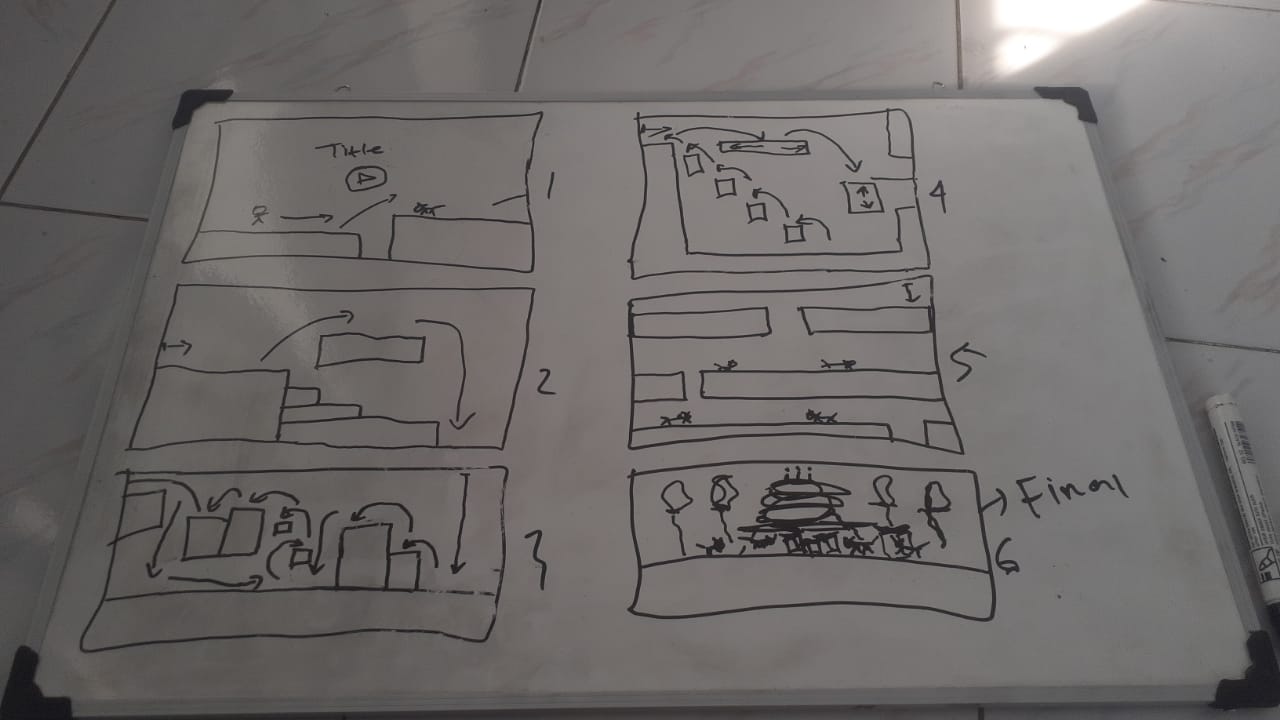 Title
1
2
3
4
5
→ Final
6